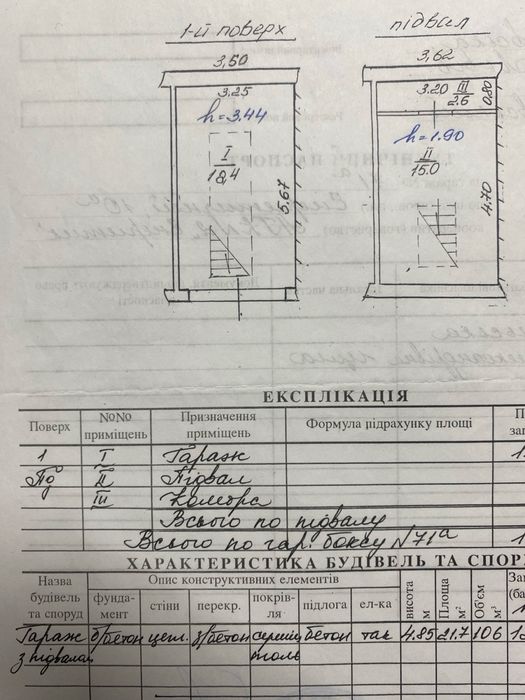 1-й поверх
підвал
3,60
3,62
3,25
3.20 III
2.6
0,80
h=3,44
h=1.90
I
18,4
II
15.0
5,67
4.70
ЕКСПЛІКАЦІЯ
Поверх №№ приміщень Призначення приміщень Формула підрахунку площі
1 I Гараж
Пд II Підвал
III Комора
Всього по підвалу
Всього по гар. боксу N71а
ХАРАКТЕРИСТИКА БУДІВЕЛЬ ТА СПОР
Назва будівель та споруд Опис конструктивних елементів
фунда-мент стіни перекр. покрів-ля підлога ел-ка висота м Площа м² Об'єм м³
Гараж з підвалом б/бетон цегл. з/бетон бетон так 4.85 21.7 106